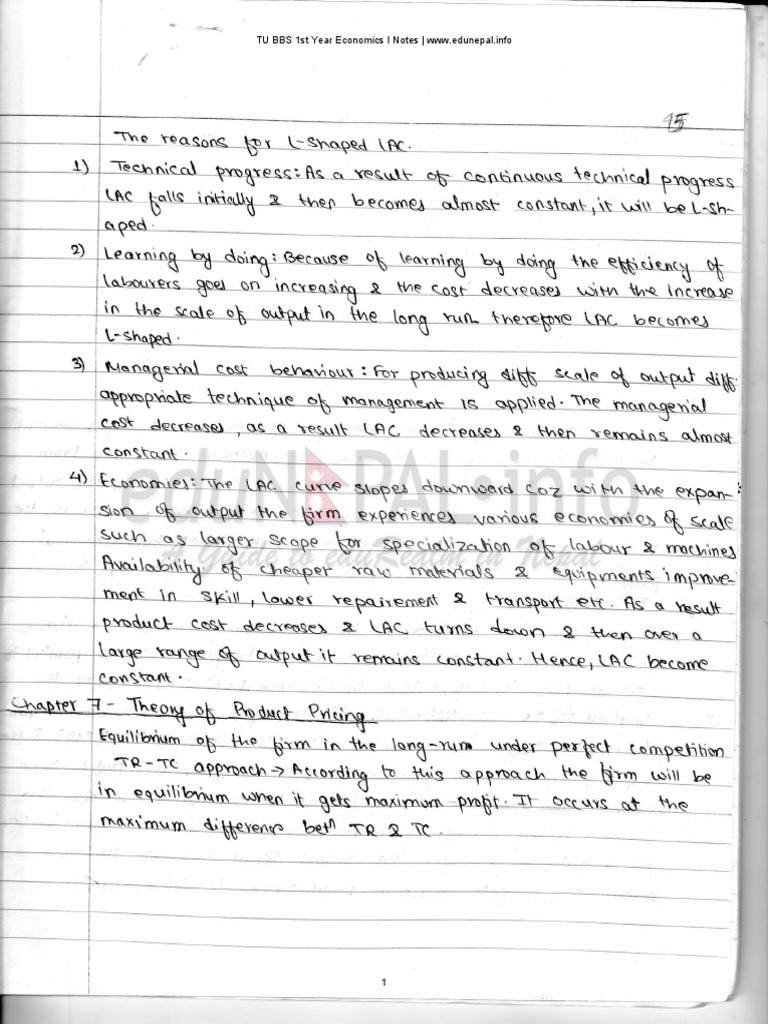 TU BBS 1st Year Economics I Notes | www.edunepal.info
95
The reasons for L-shaped LAC.
1) Technical progress: As a result of continuous technical progress
LAC falls initially & then becomes almost constant, it will be L-sh-
aped.
2) Learning by doing: Because of learning by doing the efficiency of
labourers goes on increasing & the cost decreases with the increase
in the scale of output in the long run therefore LAC becomes
L-shaped.
3) Managerial cost behaviour: For producing diff scale of output diff.
appropriate technique of management is applied. The managerial
cost decreases, as a result LAC decreases & then remains almost
constant.
eduNEPAL.info
4) Economies: The LAC curve slopes downward coz with the expan-
sion of output the firm experiences various economies of scale
such as larger scope for specialization of labour & machines
a Guide to education in Nepal
Availability of cheaper raw materials & equipments improve-
ment in skill, lower repairement & transport etc. As a result
product cost decreases & LAC turns down & then over a
large range of output it remains constant. Hence, LAC become
constant.
Chapter 7 - Theory of Product Pricing
Equilibrium of the firm in the long-run under perfect competition
TR-TC approach → According to this approach the firm will be
in equilibrium when it gets maximum profit. It occurs at the
maximum difference betn TR & TC.
1